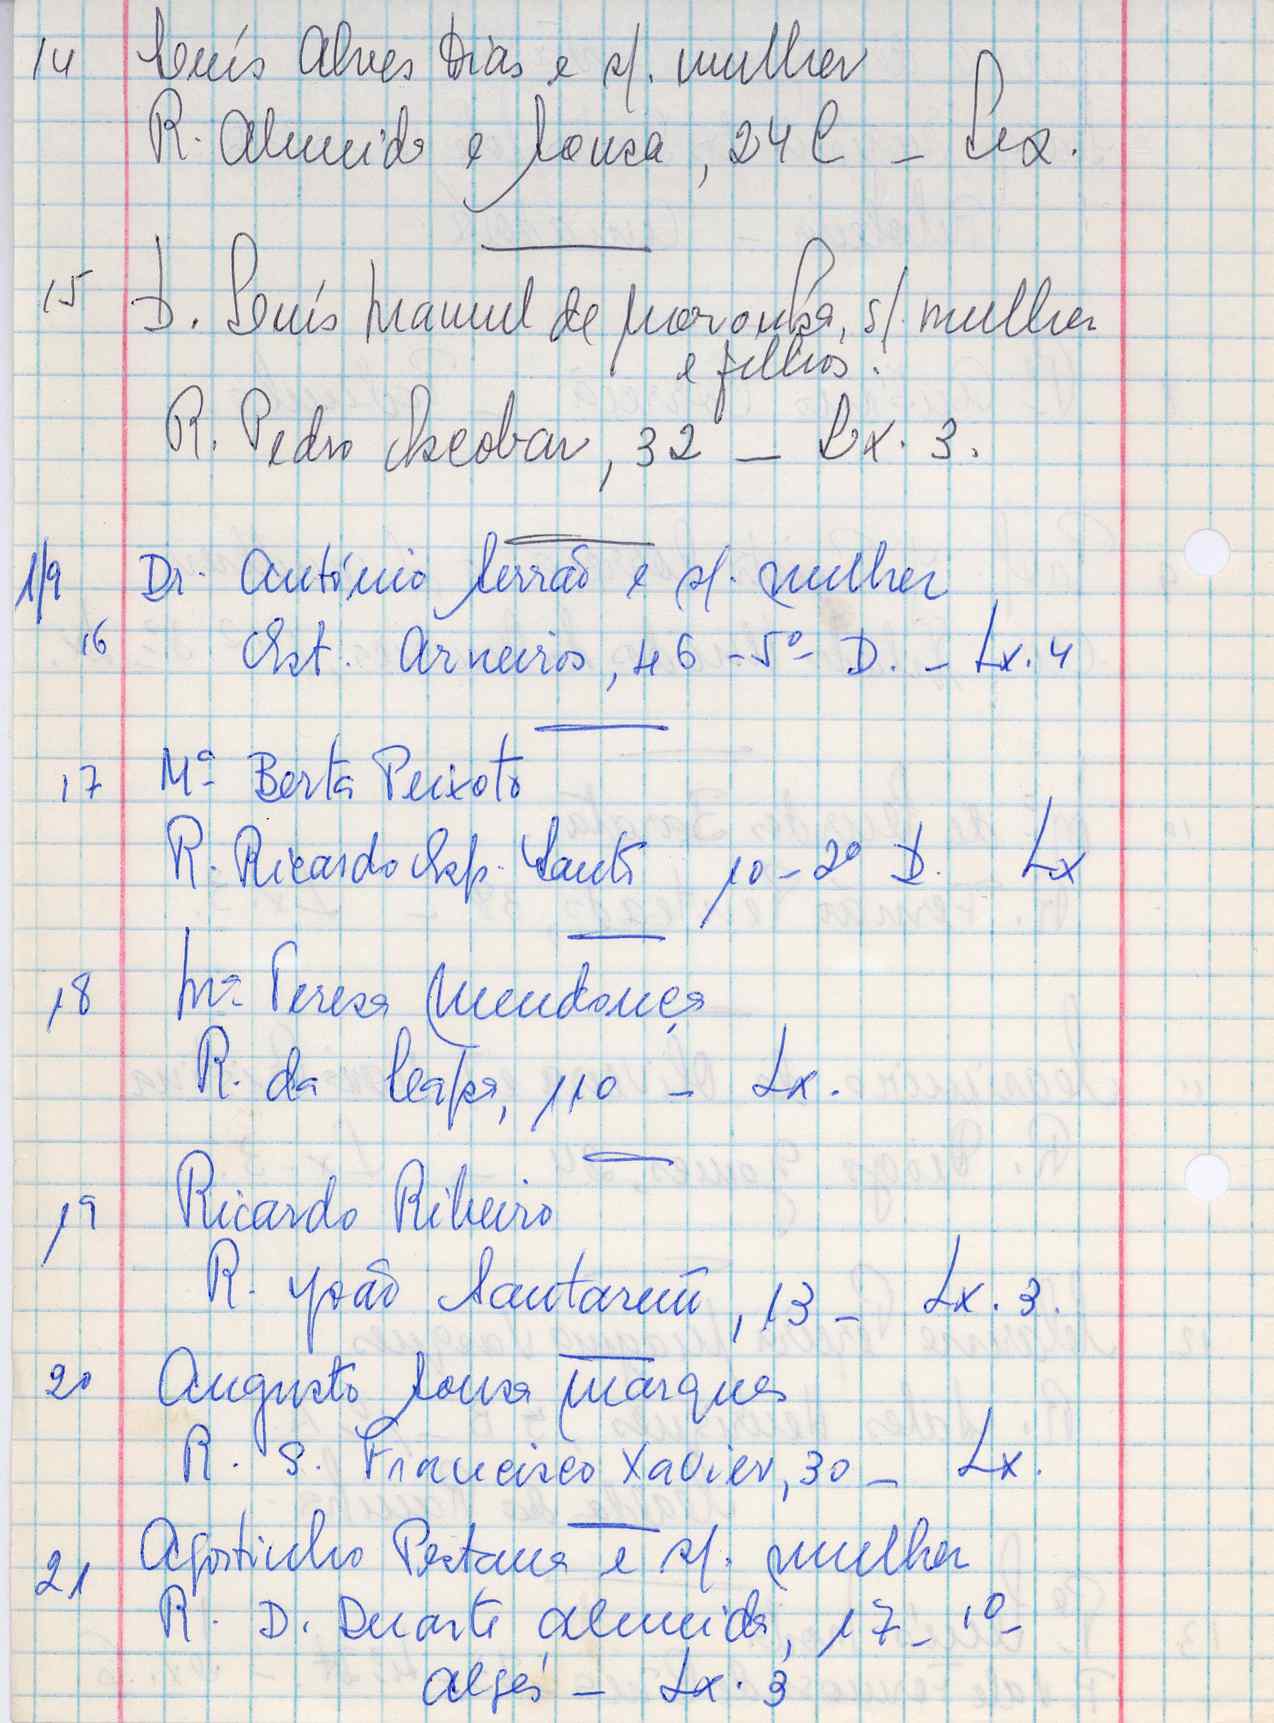 14 Luís Alves Dias e s/. mulher
R. Almeida e Sousa, 24 C – Lx.
15 D. Luís Manuel de Noronha, s/ mulher
e filhos.
R. Pedro Escobar, 32 – Lx. 3.
1/9 Dr. António Serrão e s/. mulher
16 Est. Arneiros, 46 - 5º - D. – Lx. 4
17 Mª Berta Peixoto
R. Ricardo Esp. Santo 10 - 2º D. Lx
18 Mª Teresa Mendonça
R. da 110 – Lx.
19 Ricardo Ribeiro
R. João Santarém, 13 – Lx. 3.
20 Augusto Sousa Marques
R. S. Francisco Xavier, 30 – Lx.
21 Agostinho Pestana e s/. mulher
R. D. Duarte Almeida, 17 - 1º -
Algés – Lx. 3